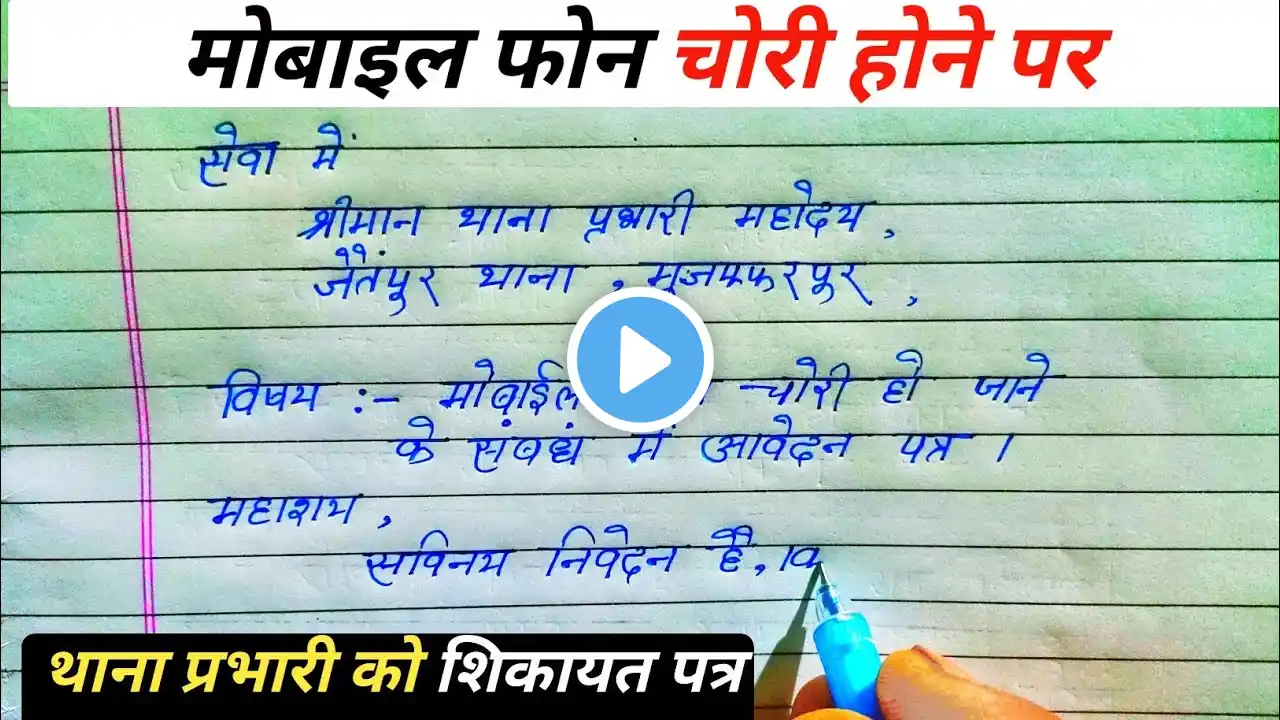 मोबाइल फोन चोरी होने पर
सेवा में
श्रीमान थाना प्रभारी महोदय,
जैतंपुर थाना, मुजफ्फरपुर,
विषय :- मोबाईल चोरी हो जाने
के संबधं में आवेदन पत्र ।
महाशय,
सविनय निवेदन है,
थाना प्रभारी को शिकायत पत्र